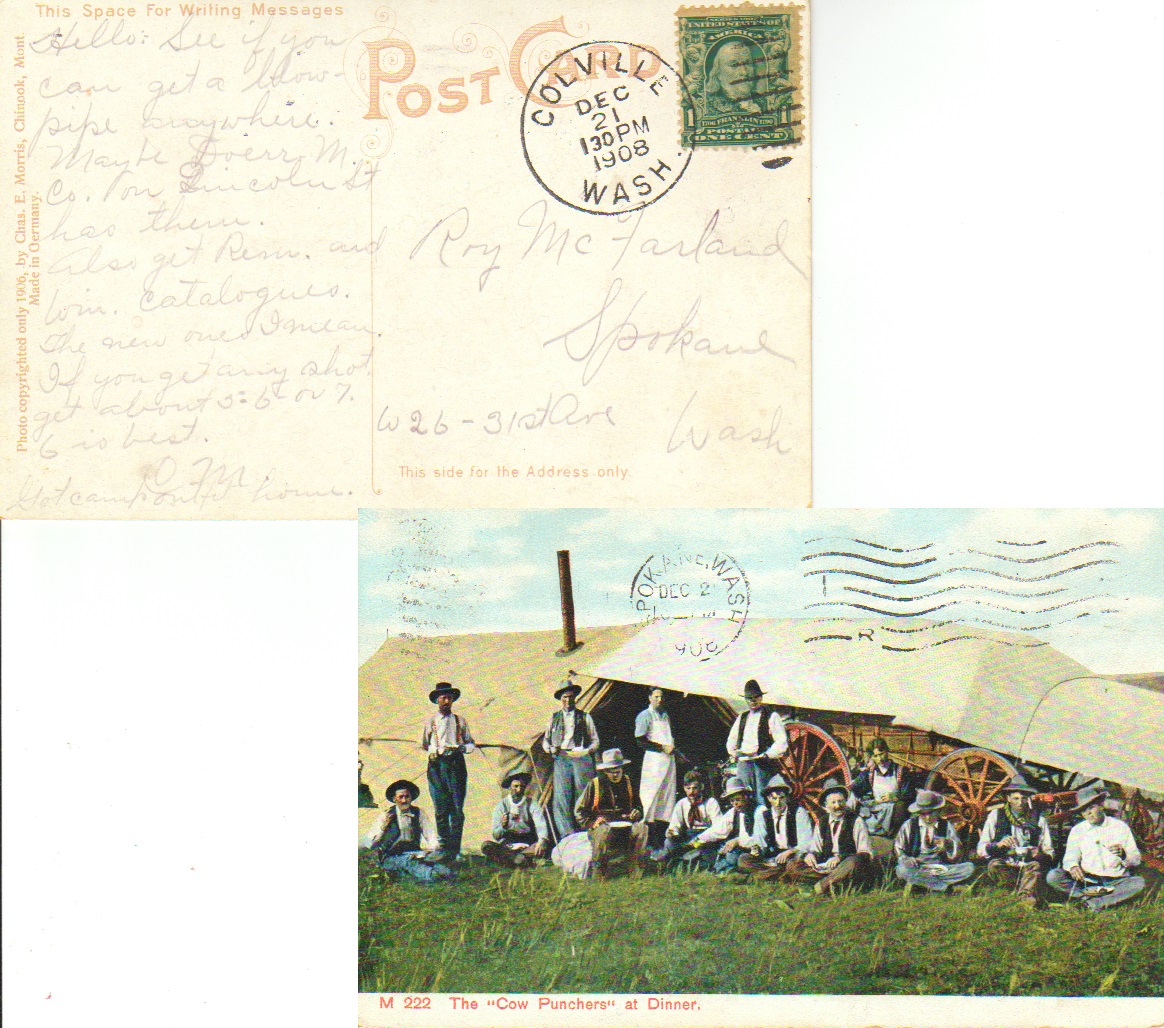 This Space For Writing Messages
Hello: See if you
can get a blow-
pipe anywhere.
Maybe Doerr M.
Co. on Lincoln St
has them.
Also get Rem. and
Win. catalogues.
The new ones I mean.
If you get any shot
get about 5-6-or 7.
6 is best.
O.M.
Got camp outfit home.
Photo copyrighted only 1906, by Chas. E. Morris, Chinook, Mont.
Made in Germany.
POST CARD
COLVILLE
DEC
21
130PM
1908
WASH.
UNITED STATES OF
AMERICA
1706 FRANKLIN 1790
POSTAGE
1 ONE CENT 1
Roy McFarland
Spokane
W 26 - 31st Ave
Wash
This side for the Address only.
SPOKANE, WASH
DEC 2
190
R
M 222 The "Cow Punchers" at Dinner.